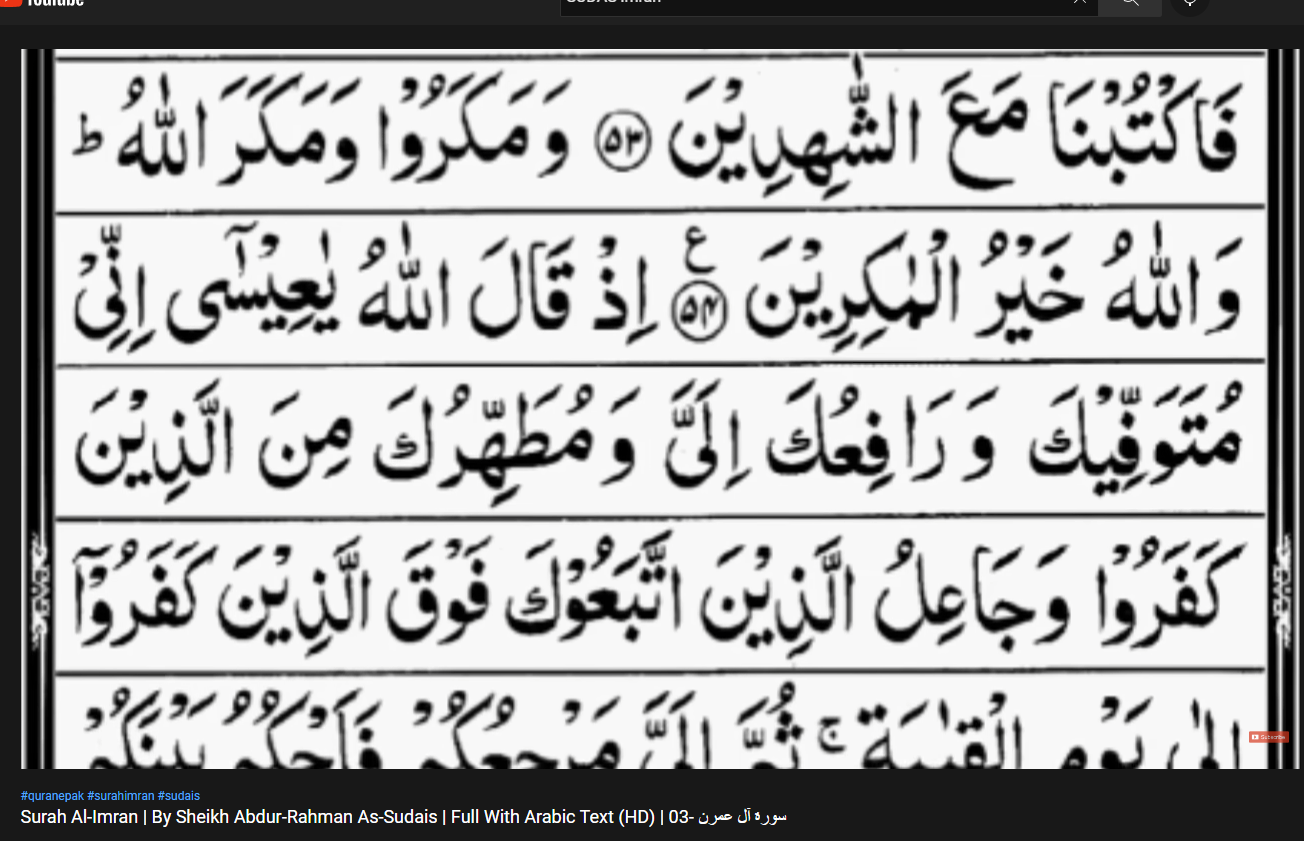 YouTube
فَاكْتُبْنَا مَعَ الشّٰهِدِيْنَ ۝۵۳ وَمَكَرُوْا وَمَكَرَ اللّٰهُ ؕ
وَاللّٰهُ خَيْرُ الْمٰكِرِيْنَ ۝۵۴ ع اِذْ قَالَ اللّٰهُ يٰعِيْسٰٓى اِنِّىْ
مُتَوَفِّيْكَ وَرَافِعُكَ اِلَىَّ وَمُطَهِّرُكَ مِنَ الَّذِيْنَ
كَفَرُوْا وَجَاعِلُ الَّذِيْنَ اتَّبَعُوْكَ فَوْقَ الَّذِيْنَ كَفَرُوْۤا
اِلٰى يَوْمِ الْقِيٰمَةِ ۚ ثُمَّ اِلَىَّ مَرْجِعُكُمْ فَاَحْكُمُ بَيْنَكُمْ
Subscribe
#quranepak #surahimran #sudais
Surah Al-Imran | By Sheikh Abdur-Rahman As-Sudais | Full With Arabic Text (HD) | 03- سورہ آل عمرن